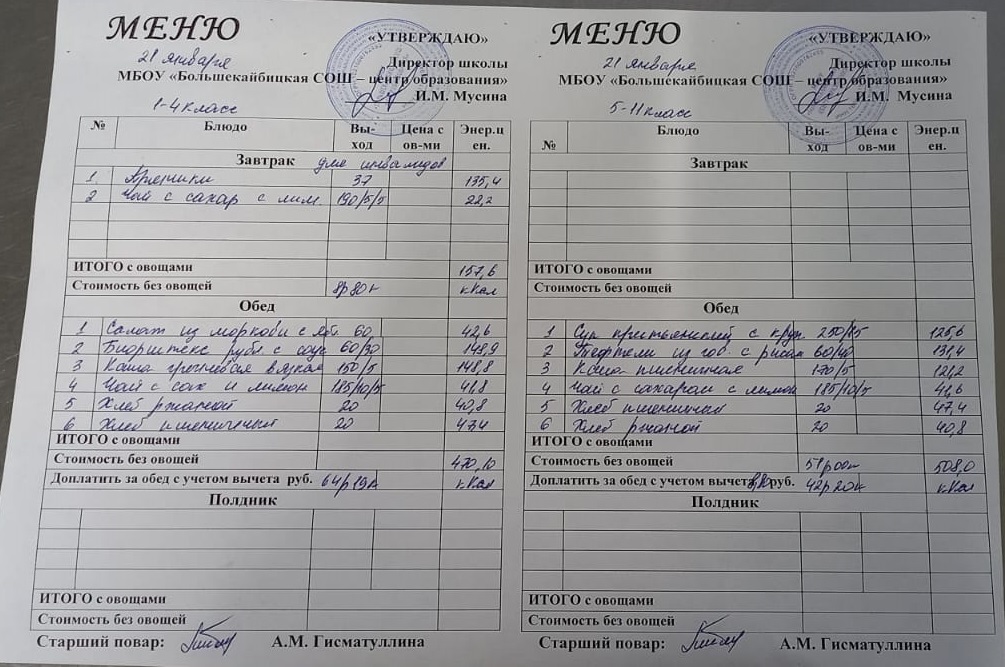 МЕНЮ
21 января
«УТВЕРЖДАЮ»
Директор школы
МБОУ «Большекайбицкая СОШ – центр образования»
И.М. Мусина
1-4 класс
№ Блюдо Вы-ход Цена с ов-ми Энер.ц ен.
Завтрак для инвалидов
1 Пряники 37 135,4
2 Чай с сахар с лим. 190/5/5 22,2
ИТОГО с овощами 157,6
Стоимость без овощей 8р80к кКал
Обед
1 Салат из моркови с яб. 60 42,6
2 Биорштекс рубл. с соус 60/30 148,9
3 Каша гречневая вязкая 150/5 148,8
4 Чай с сах и лимон 185/10/5 41,8
5 Хлеб ржаной 20 40,8
6 Хлеб пшеничный 20 47,4
ИТОГО с овощами
Стоимость без овощей 470,10
Доплатить за обед с учетом вычета руб. 64р19к кКал
Полдник
ИТОГО с овощами
Стоимость без овощей
Старший повар: А.М. Гисматуллина
МЕНЮ
21 января
«УТВЕРЖДАЮ»
Директор школы
МБОУ «Большекайбицкая СОШ – центр образования»
И.М. Мусина
5-11 класс
№ Блюдо Вы-ход Цена с ов-ми Энер.ц ен.
Завтрак
ИТОГО с овощами
Стоимость без овощей
Обед
1 Суп крестьянский с круп. 250/15 125,6
2 Тефтели из гов. с рисом 60/40 131,4
3 Каша пшеничная 170/5 121,2
4 Чай с сахаром с лимон 185/10/5 41,6
5 Хлеб пшеничный 20 47,4
6 Хлеб ржаной 20 40,8
ИТОГО с овощами
Стоимость без овощей 51р00к 508,0
Доплатить за обед с учетом вычета руб. 42р20к кКал
Полдник
ИТОГО с овощами
Стоимость без овощей
Старший повар: А.М. Гисматуллина